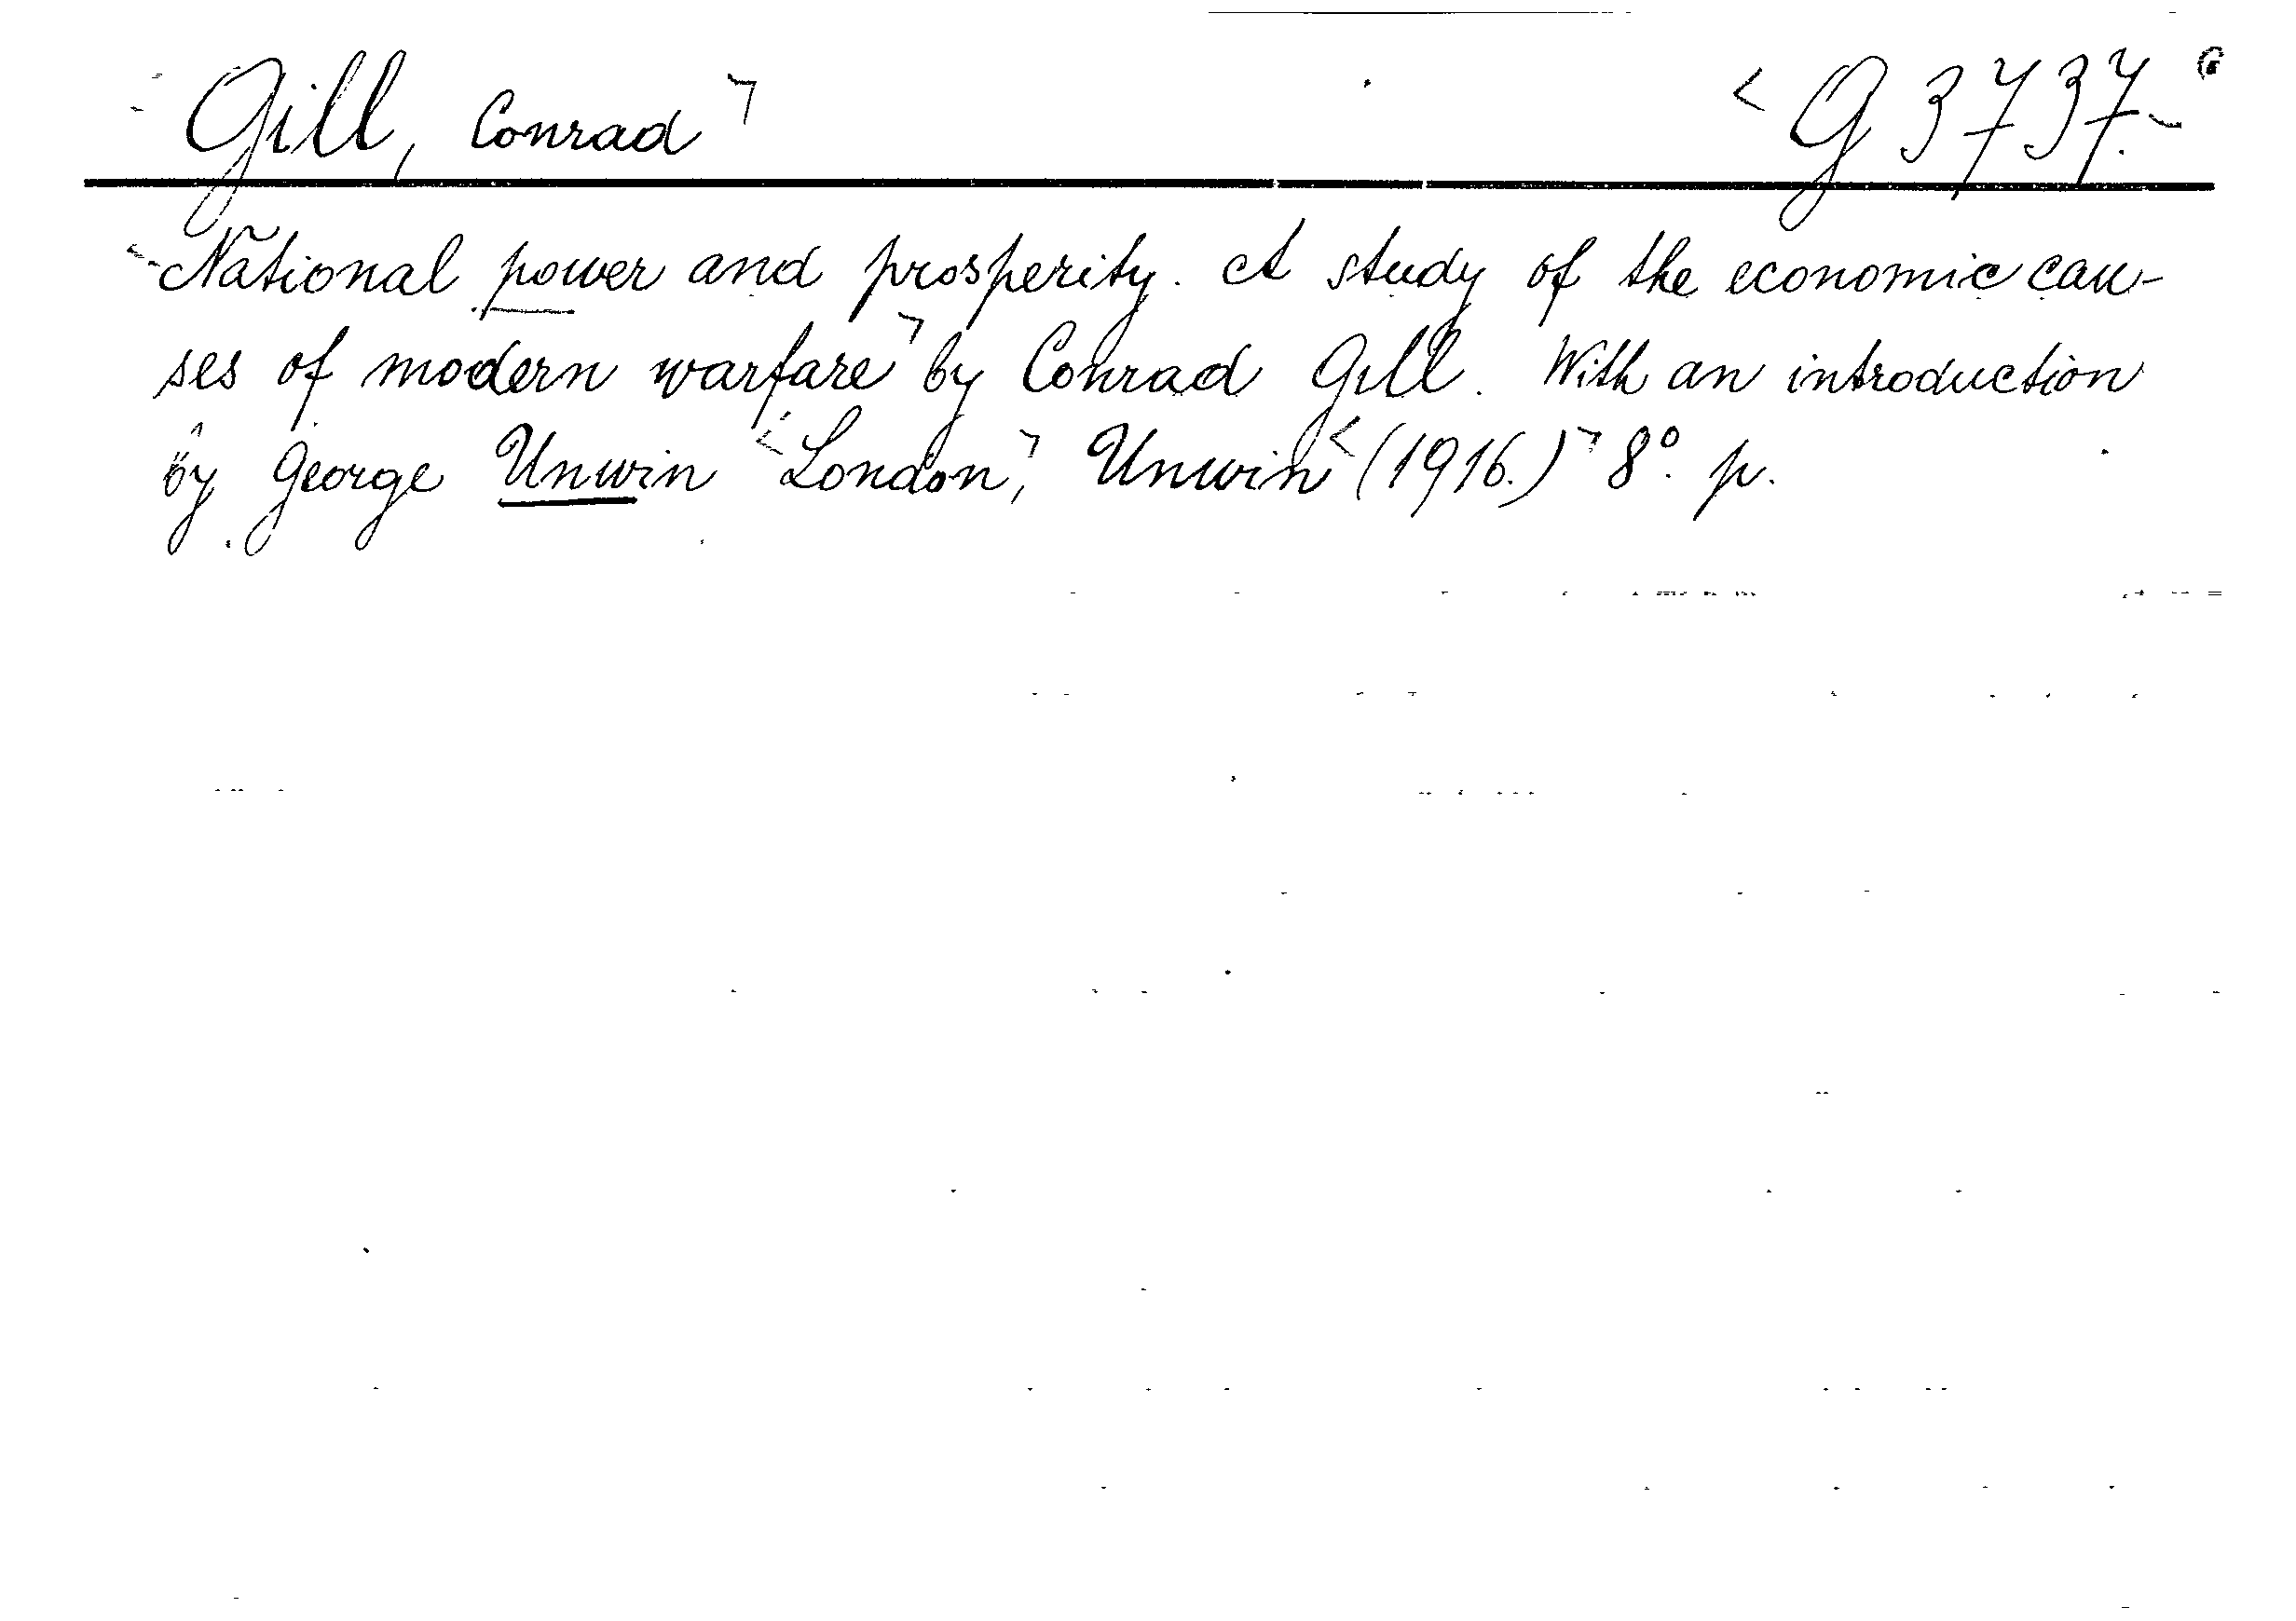 Gill, Conrad G 3737.
National power and prosperity. A study of the economic cau-
ses of modern warfare by Conrad Gill. With an introduction
by George Unwin London, Unwin (1916.) 8°. p.